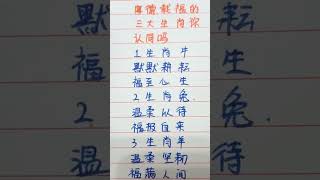 厚德载福的
三大生肖你
认同吗
1生肖牛
默默耕耘
福至心生
2生肖兔.
温柔以待
福报自来
3生肖羊
温柔坚韧
福满人间